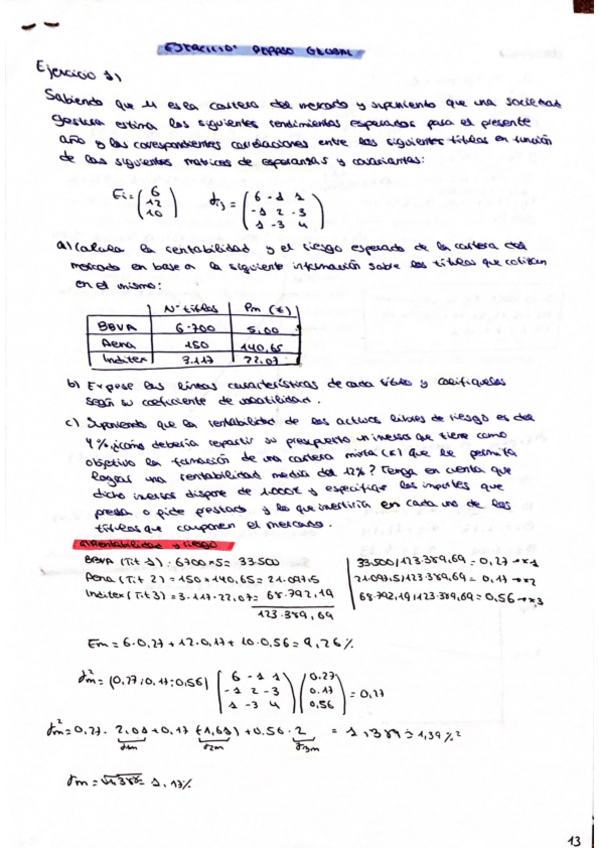 EJERCICIO REPASO GLOBAL
Ejercicio 1)
Sabiendo que M es la cartera del mercado y suponiendo que una sociedad
gestora estima los siguientes rendimientos esperados para el presente
año y las correspondientes correlaciones entre los siguientes títulos en función
de las siguientes matrices de esperanzas y covarianzas:
Ei = ( 6 12 10 ) σij = ( 6 -1 1
-1 2 -3
1 -3 4 )
a) Calcula la rentabilidad y el riesgo esperado de la cartera del
mercado en base a la siguiente información sobre los títulos que cotizan
en el mismo:
Nº títulos Pm (€)
BBVA 6.700 5,00
Aena 150 140,65
Inditex 3.117 22,07
b) Expese las líneas características de cada título y califíquelos
según su coeficiente de volatilidad.
c) Suponiendo que la rentabilidad de los activos libres de riesgo es del
4% ¿cómo debería repartir su presupuesto un inversor que tiene como
objetivo la formación de una cartera mixta (E) que le permita
lograr una rentabilidad media del 12%? Tenga en cuenta que
dicho inversor dispone de 1000€ y especifique los importes que
presta o pide prestado y lo que invertiría en cada uno de los
títulos que componen el mercado.
a) Rentabilidad y riesgo
BBVA (Tit 1): 6700×5 = 33.500
Aena (Tit 2) = 150×140,65 = 21.097,5
Inditex (Tit 3) = 3.117·22,07 = 68.792,19
123.389,69
33.500/123.389,69 = 0,27 → x1
21.097,5/123.389,69 = 0,17 → x2
68.792,19/123.389,69 = 0,56 → x3
Em = 6·0,27 + 12·0,17 + 10·0,56 = 9,26%
σ²m = (0,27;0,17;0,56) ( 6 -1 1
-1 2 -3
1 -3 4 ) ( 0,27 0,17 0,56 ) = 0,27
σ²m = 0,27 · 2,01 + 0,17 · (-1,61) + 0,56 · 2 = 1,389 ≈ 1,39%²
σ1m σ2m σ3m
σm = √1,389 = 1,17%
13